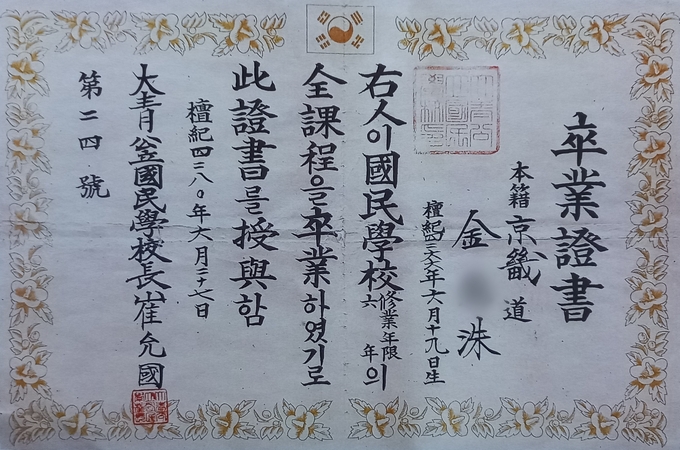 卒業證書
本籍 京畿道
金 洙
檀紀四二六六年六月十九日生
右人이國民學校修業年限六年의
全課程을卒業하였기로
此證書를授與함
檀紀四二八〇年六月二十七日
大靑公立國民學校長崔允國
第二四號